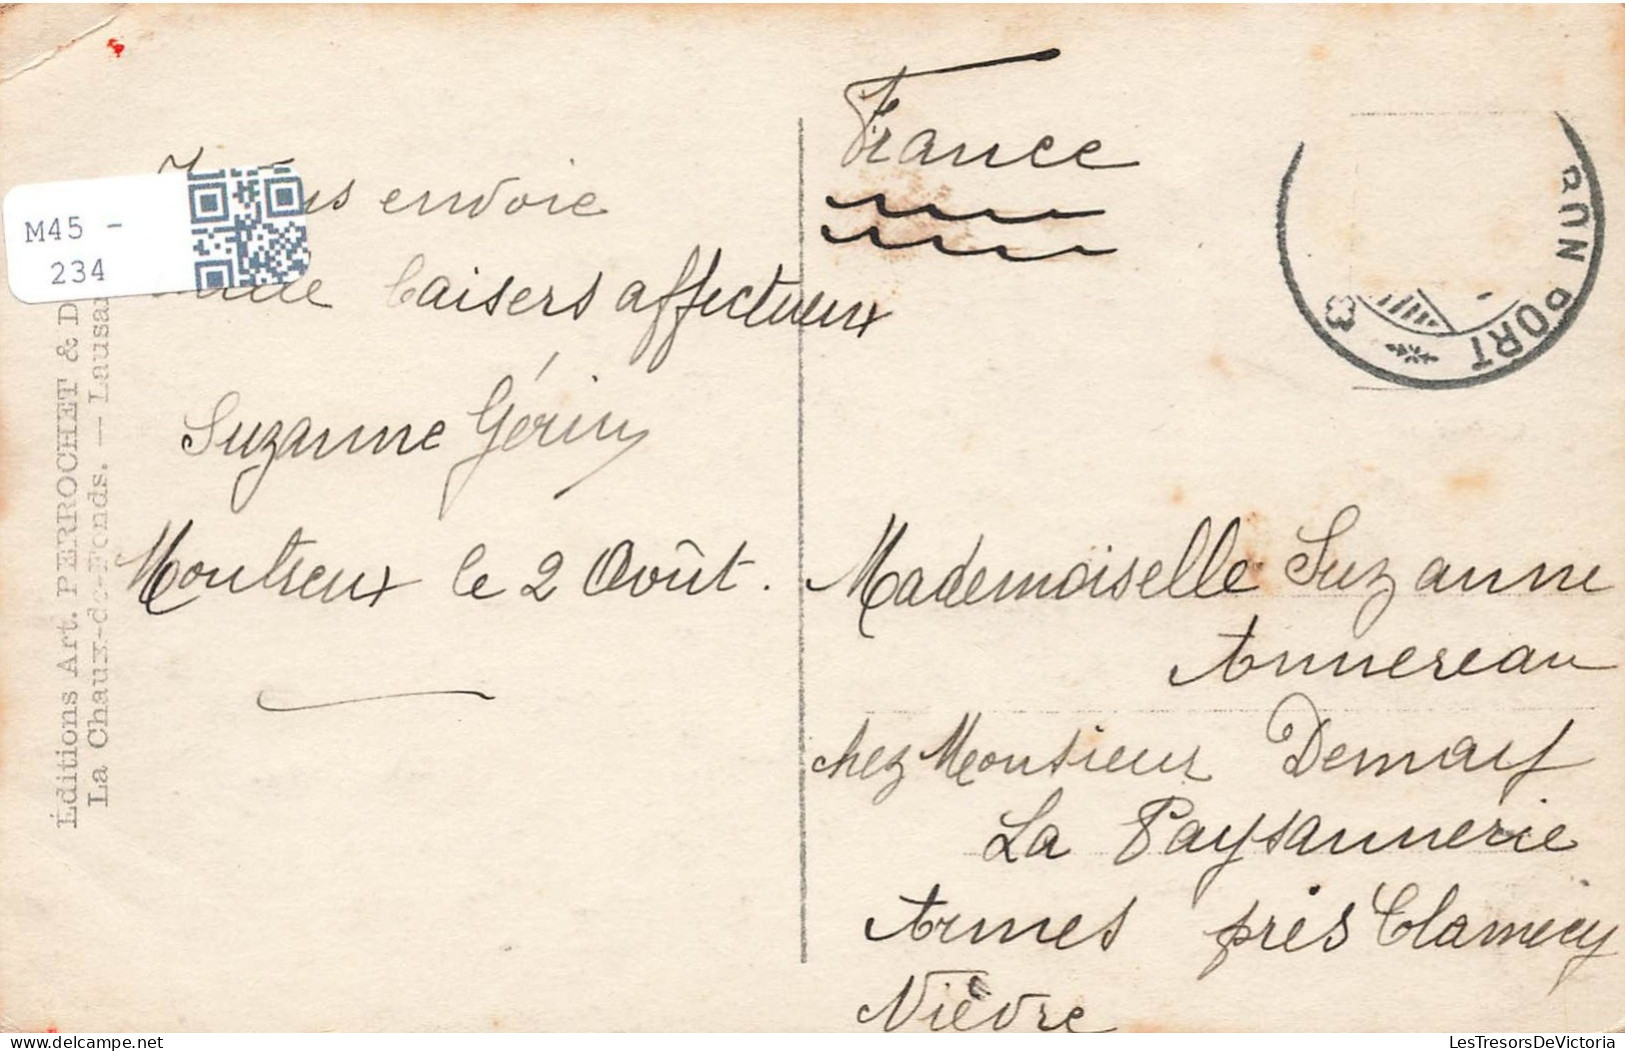 M45 -
234
envoie
baisers affectueux
Suzanne Gérin
Montreux le 2 Août.
Éditions Art. PERROCHET & D
La Chaux-de-Fonds. — Lausan
France
BUN PORT
Mademoiselle Suzanne
Annereau
chez Monsieur Demay
La Paysannerie
Armes près Clamecy
Nièvre
LesTresorsDeVictoria